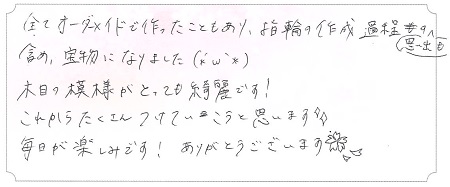 全てオーダーメイドで作ったこともあり、指輪の作成過程の思い出も
含め、宝物になりました(*´ω`*)
木目の模様がとっても綺麗です!
これからたくさんつけていこうと思います
毎日が楽しみです! ありがとうございます